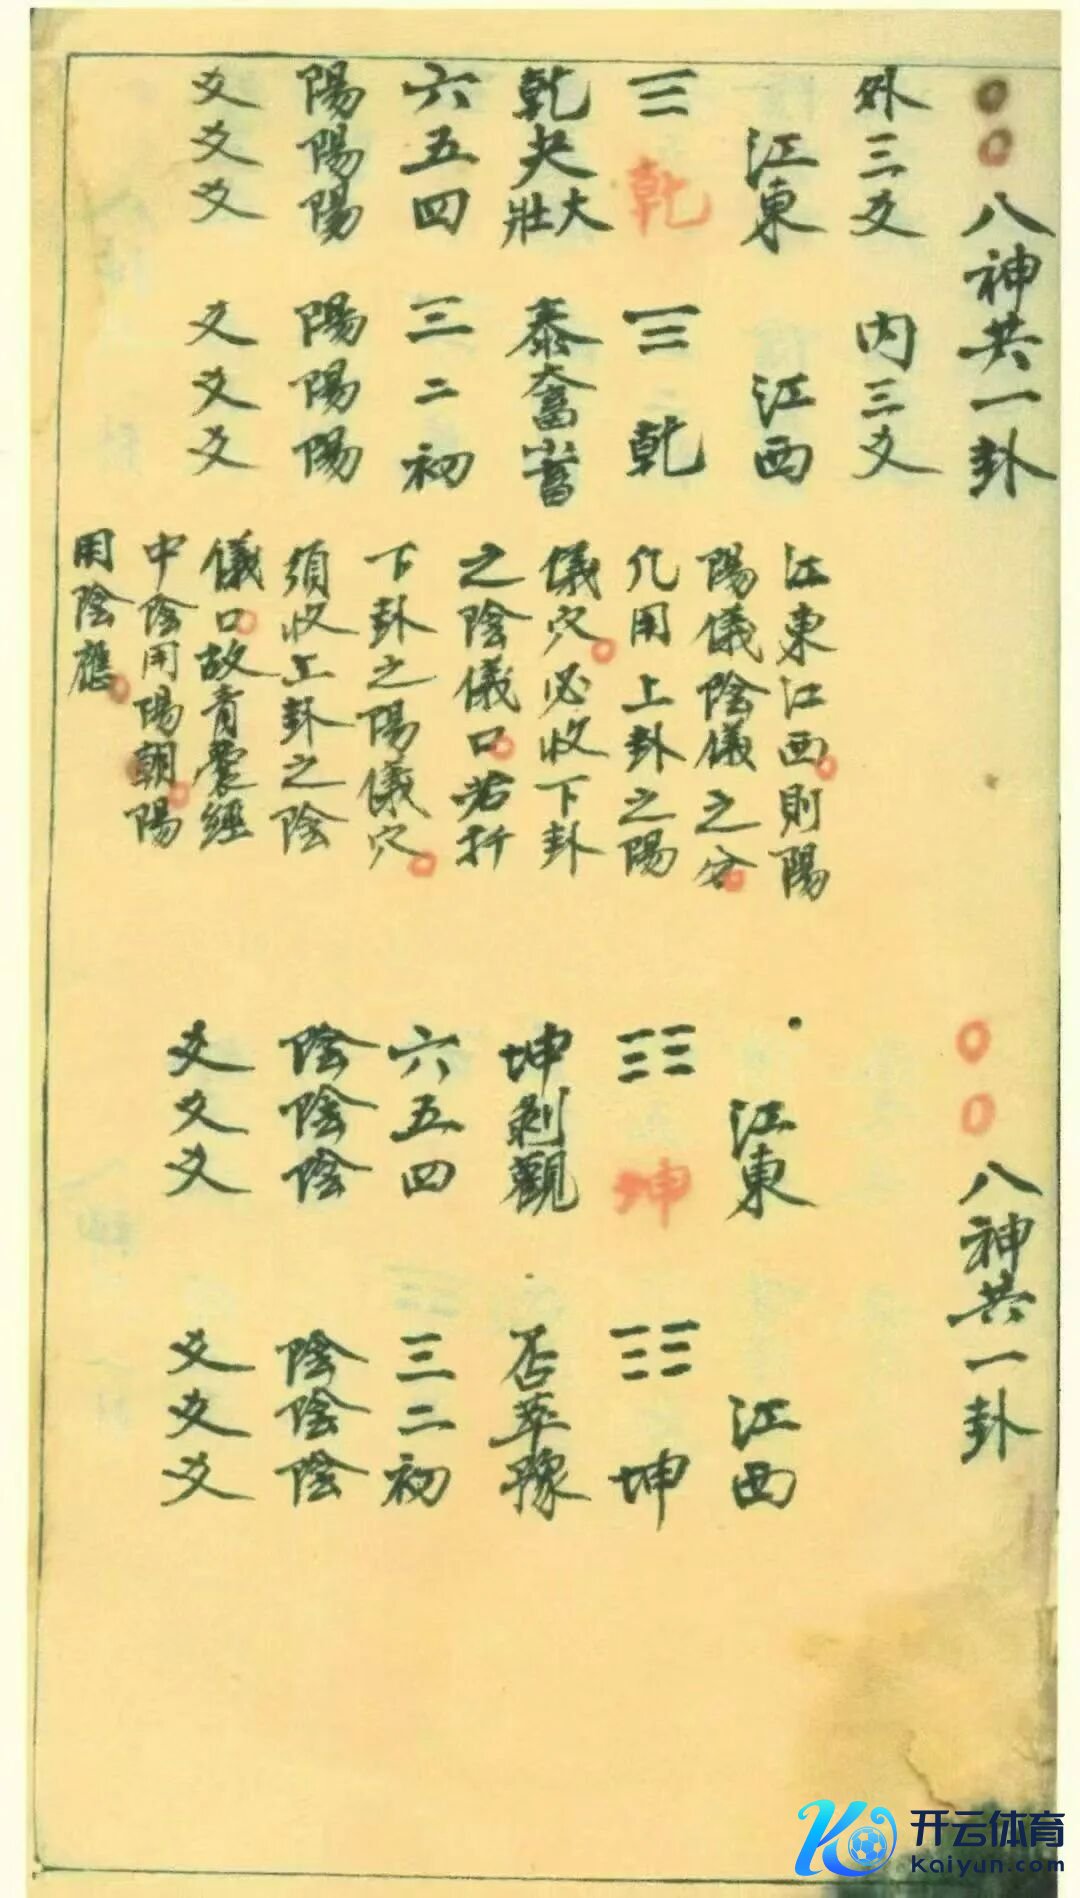 八神共一卦
外三爻
内三爻
江東
江西
乾
乾
乾夬大壯
泰大畜小畜
六五四
三二初
陽陽陽
陽陽陽
爻爻爻
爻爻爻
江東江西則陽
陽儀陰儀之分
凡用上卦之陽
儀穴必收下卦
之陰儀口若扦
下卦之陽儀穴
須收上卦之陰
儀口故青囊經
中陰用陽朝陽
用陰應
八神共一卦
江東
江西
坤
坤
坤剝觀
否萃豫
六五四
三二初
陰陰陰
陰陰陰
爻爻爻
爻爻爻
开云体育
kaiyun.com